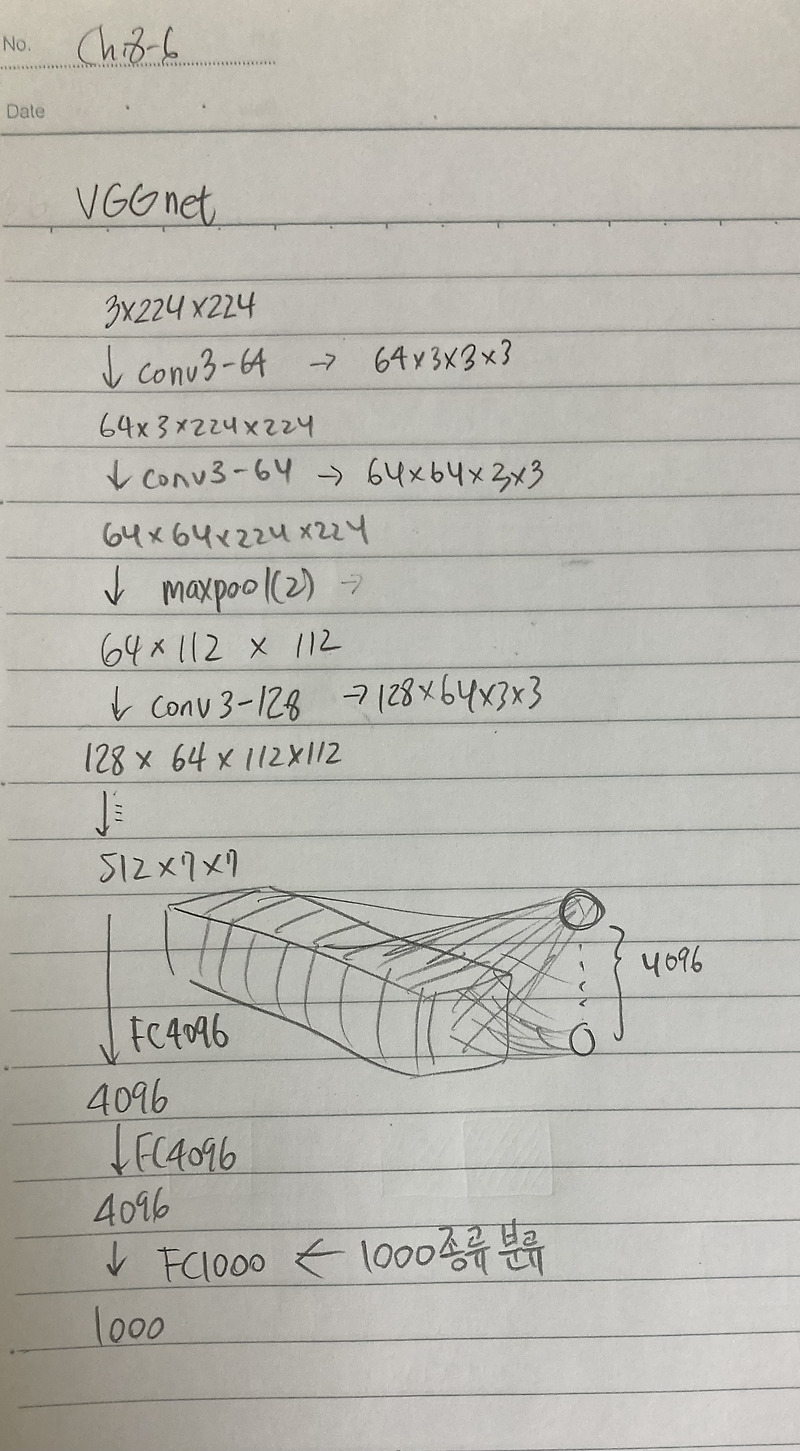 No. Ch.8-6
Date
VGGnet
3×224×224
↓ conv3-64 → 64×3×3×3
64×3×224×224
↓ conv3-64 → 64×64×3×3
64×64×224×224
↓ maxpool(2) →
64×112×112
↓ conv3-128 → 128×64×3×3
128×64×112×112
↓
512×7×7
4096
↓ FC4096
4096
↓ FC4096
4096
↓ FC1000 ← 1000종류 분류
1000